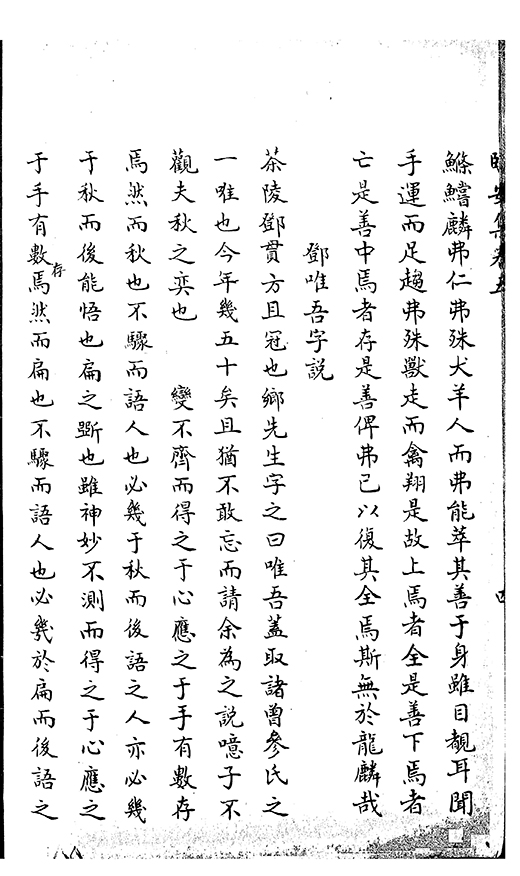 鰷鱨麟弗仁弗殊犬羊人而弗能萃其善于身雖目覩耳聞
手運而足趨弗殊獸走而禽翔是故上焉者全是善下焉者
亡是善中焉者存是善俾弗已以復其全焉斯無於龍麟哉
鄧唯吾字説
茶陵鄧貫方且冠也鄉先生字之曰唯吾蓋取諸曾參氏之
一唯也今年幾五十矣且猶不敢忘而請余為之説噫子不
觀夫秋之奕也　變不齊而得之于心應之于手有數存
焉然而秋也不驟而語人也必幾于秋而後語之人亦必幾
于秋而後能悟也扁之斲也雖神妙不測而得之于心應之
于手有數存焉然而扁也不驟而語人也必幾於扁而後語之